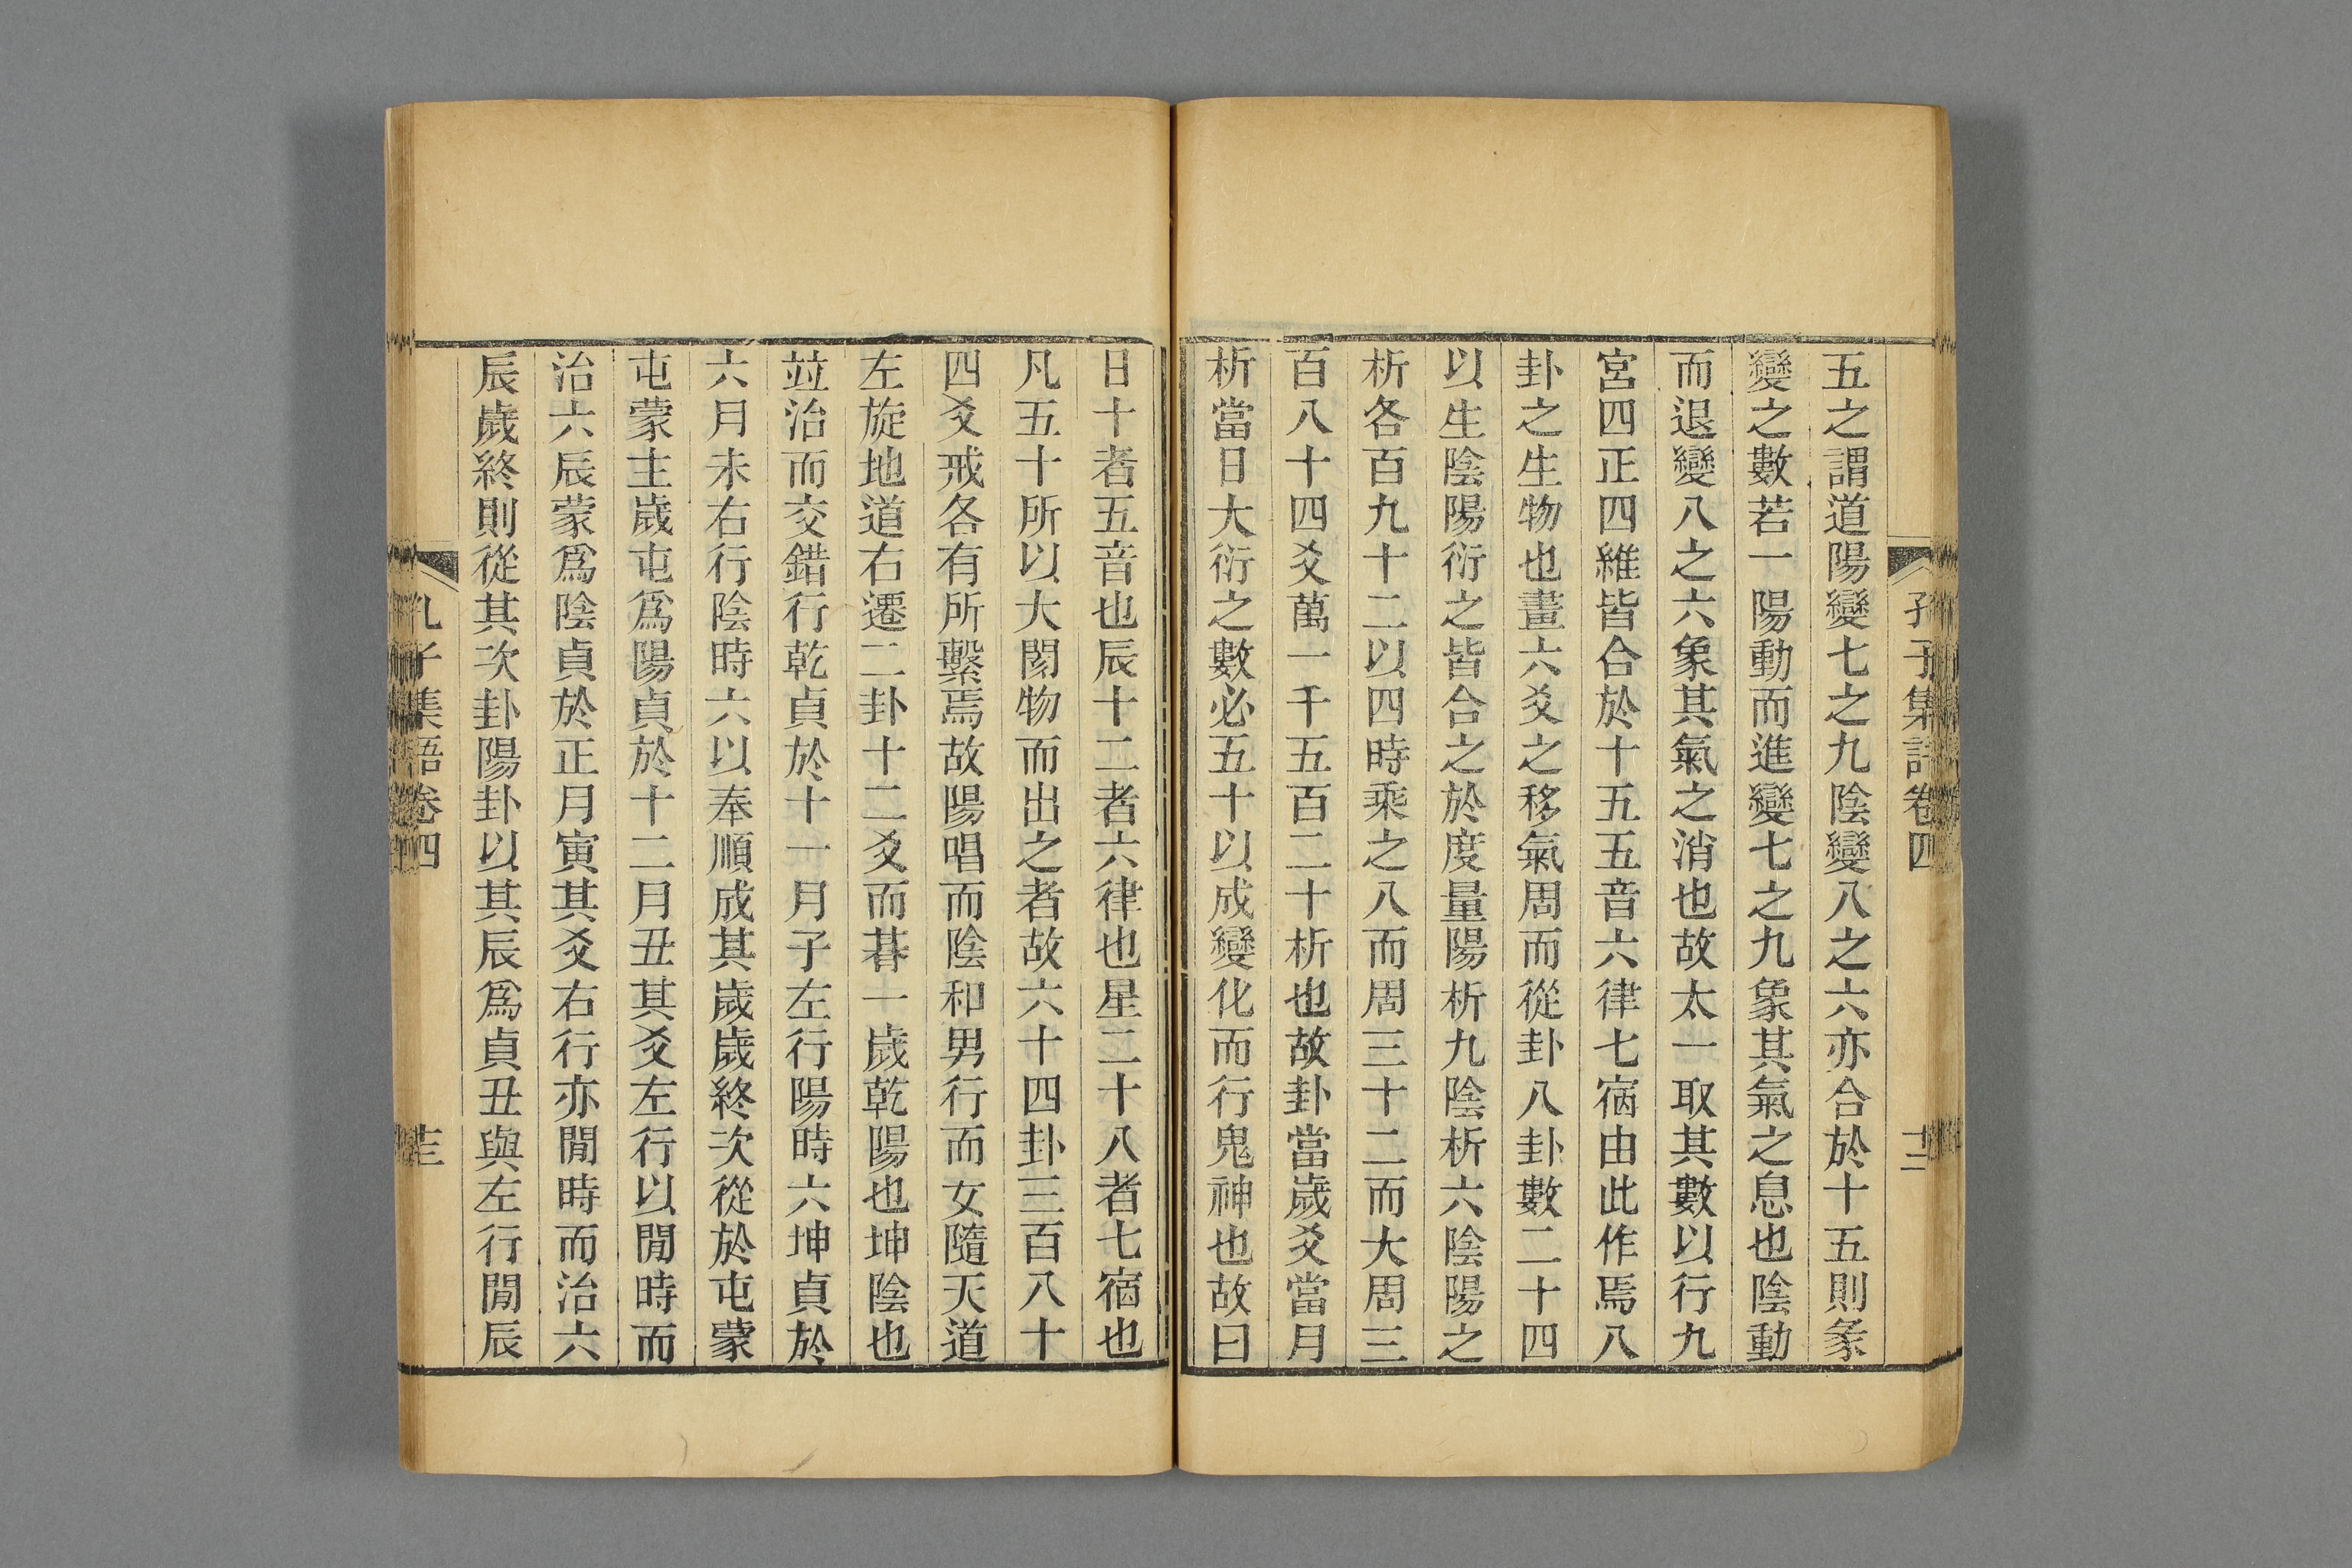 孔子集語卷四
十二
五之謂道陽變七之九陰變八之六亦合於十五則彖
變之數若一陽動而進變七之九象其氣之息也陰動
而退變八之六象其氣之消也故太一取其數以行九
宮四正四維皆合於十五五音六律七宿由此作焉八
卦之生物也畫六爻之移氣周而從卦八卦數二十四
以生陰陽衍之皆合之於度量陽析九陰析六陰陽之
析各百九十二以四時乘之八而周三十二而大周三
百八十四爻萬一千五百二十析也故卦當歲爻當月
析當日大衍之數必五十以成變化而行鬼神也故曰
日十者五音也辰十二者六律也星二十八者七宿也
凡五十所以大閡物而出之者故六十四卦三百八十
四爻戒各有所繫焉故陽唱而陰和男行而女隨天道
左旋地道右遷二卦十二爻而朞一歲乾陽也坤陰也
竝治而交錯行乾貞於十一月子左行陽時六坤貞於
六月未右行陰時六以奉順成其歲歲終次從於屯蒙
屯蒙主歲屯爲陽貞於十二月丑其爻左行以閒時而
治六辰蒙爲陰貞於正月寅其爻右行亦閒時而治六
辰歲終則從其次卦陽卦以其辰爲貞丑與左行閒辰
孔子集語卷四
十三